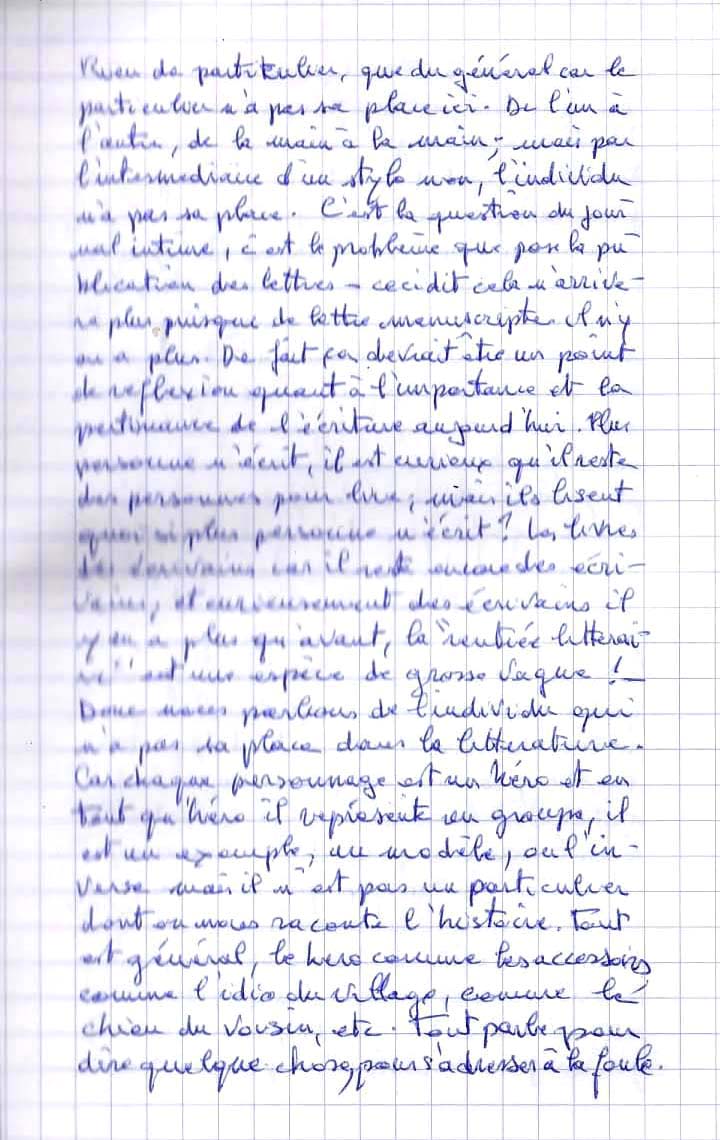 Rien de particulier, que du général car le
particulier n'a pas sa place ici. De l'un à
l'autre, de la main à la main; mais par
l'intermediaire d'un stylo non, l'individu
n'a pas sa place. C'est la question du jour
nal intime, c'est le problème que pose la pu
blication des lettres – ceci dit cela n'arrive-
ra plus puisque de lettre manuscripte il n'y
en a plus. De fait ça devrait être un point
de reflexion quant à l'importance et la
pertinance de l'écriture aujourd'hui. Plus
personne n'écrit, il est curieux qu'il reste
des personnes pour lire; mais ils lisent
quoi si plus personne n'écrit? Les livres
des écrivains car il reste encore des écri-
vains, et curieusement des écrivains il
y en a plus qu'avant, la "rentrée litterai-
re" est une espèce de grosse vague !
Donc nous parlions de l'individu qui
n'a pas sa place dans la litterature.
Car chaque personnage est un héro et en
tant qu'héro il représente un groupe, il
est un exemple, un modèle, ou l'in-
verse mais il n'est pas un particulier
dont on nous raconte l'histoire. Tout
est général, le hero comme les accessoirs
comme l'idio du village, comme le
chien du voisin, etc. Tout parle pour
dire quelque chose, pour s'adresser à la foule.